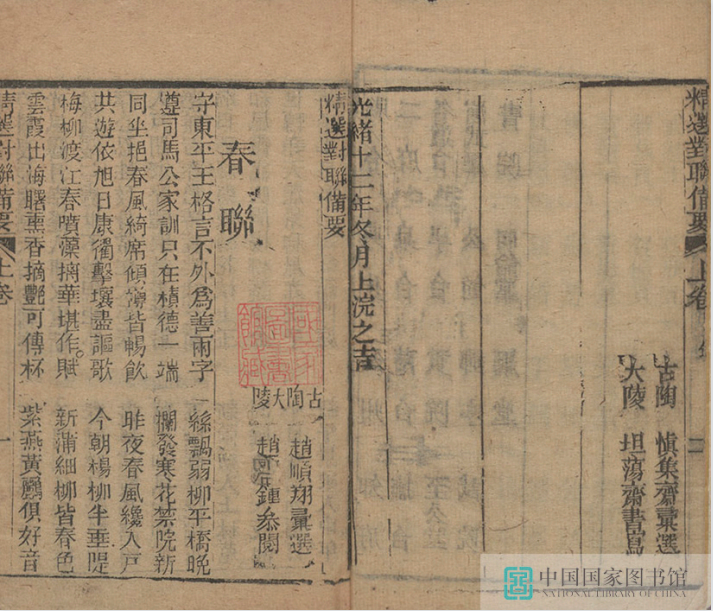 精選對聯備要
上卷
二
古陶 慎集齋彙選
大陵 坦蕩齋書寫
光緒十一年冬月上浣之吉
精選對聯備要
古陶 趙順翔彙選
大陵 趙 鍾參閱
國家圖書館藏
春聯
守東平王格言不外為善兩字
遵司馬公家訓只在積德一端
同坐挹春風綺席傾 皆暢飲
共遊依旭日康衢擊壤盡謳歌
梅柳渡江春噴藻摛華堪作賦
雲霞出海曙熏香摘艷可傳杯
絲飄弱柳平橋晚
欄發寒花禁院新
昨夜春風纔入戶
今朝楊柳半垂隄
新蒲細柳皆春色
紫燕黃鸝俱好音
精選對聯備要
上卷
一
中国国家图书馆
NATIONAL LIBRARY OF CHINA